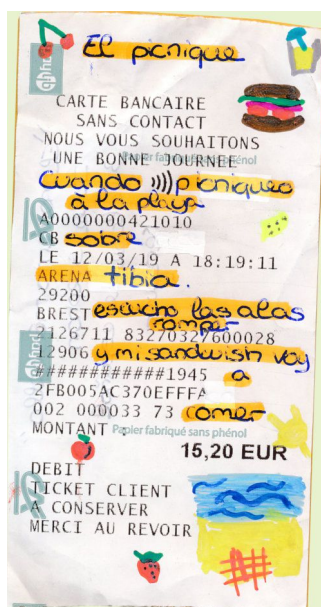 El picnique
CARTE BANCAIRE
SANS CONTACT
NOUS VOUS SOUHAITONS
UNE BONNE JOURNEE
Papier fabriqué sans phénol
Cuando ))) picniqueo
à la playa
A0000000421010
CB sobre
LE 12/03/19 A 18:19:11
ARENA tibia.
29200
BREST escucho las alas
romper
2126711 83270327600028
12906 y mi sandwish voy
############1945 a
2FB005AC370EFFFA
002 000033 73 comer
MONTANT :
Papier fabriqué sans phénol
15,20 EUR
DEBIT
TICKET CLIENT
A CONSERVER
MERCI AU REVOIR